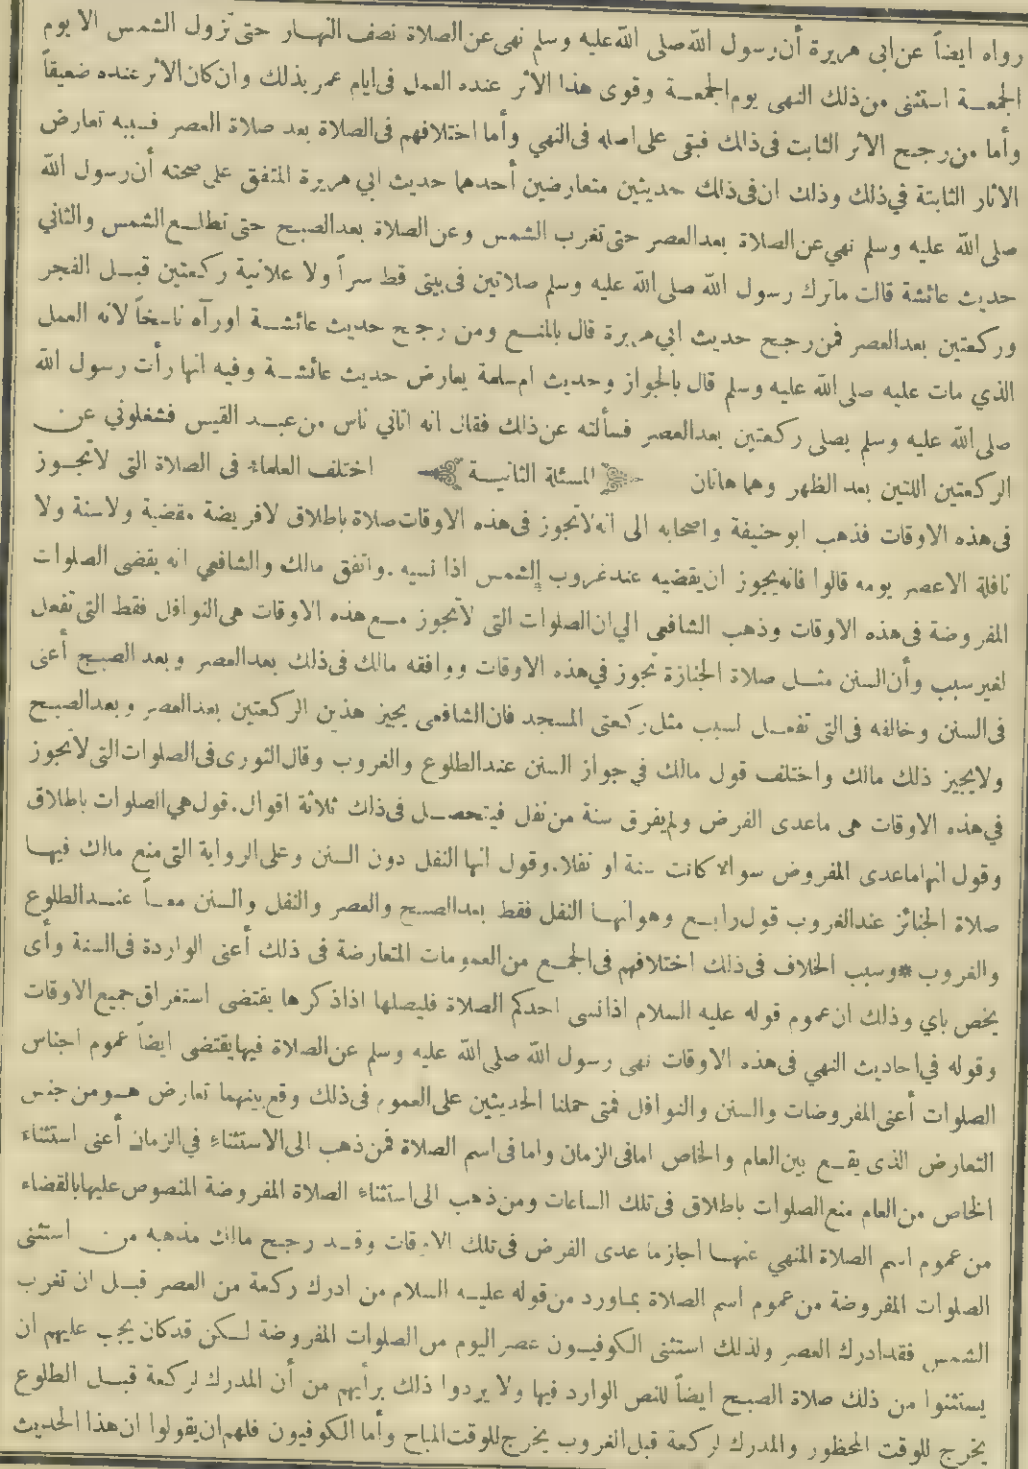 رواه ايضاً عن ابى هريرة أن رسول الله صلى الله عليه وسلم نهى عن الصلاة نصف النهار حتى تزول الشمس الا يوم
الجمعة استثنى من ذلك النهى يوم الجمعة وقوى هذا الاثر عنده العمل فى ايام عمر بذلك وان كان الاثر عنده ضعيفاً
وأما من رجح الاثر الثابت فى ذلك فبقى على اصله فى النهي وأما اختلافهم فى الصلاة بعد صلاة العصر فسببه تعارض
الاثار الثابتة في ذلك وذلك ان فى ذلك حديثين متعارضين أحدهما حديث ابي هريرة المتفق على صحته أن رسول الله
صلى الله عليه وسلم نهي عن الصلاة بعد العصر حتى تغرب الشمس وعن الصلاة بعد الصبح حتى تطلع الشمس والثاني
حديث عائشة قالت ماترك رسول الله صلى الله عليه وسلم صلاتين فى بيتى قط سراً ولا علانية ركعتين قبل الفجر
وركعتين بعد العصر فمن رجح حديث ابي هريرة قال بالمنع ومن رجح حديث عائشة اورآه ناسخاً لانه العمل
الذي مات عليه صلى الله عليه وسلم قال بالجواز وحديث ام سلمة يعارض حديث عائشة وفيه انها رأت رسول الله
صلى الله عليه وسلم يصلى ركعتين بعد العصر فسألته عن ذلك فقال انه اتاني ناس من عبد القيس فشغلوني عن
الركعتين اللتين بعد الظهر وهما هاتان المسئلة الثانية اختلف العلماء فى الصلاة التى لاتجوز
فى هذه الاوقات فذهب ابو حنيفة واصحابه الى انه لاتجوز فى هذه الاوقات صلاة باطلاق لافريضة مقضية ولاسنة ولا
نافلة الاعصر يومه قالوا فانه يجوز ان يقضيه عند غروب الشمس اذا نسيه . واتفق مالك والشافعي انه يقضى الصلوات
المفروضة فى هذه الاوقات وذهب الشافعى الي ان الصلوات التى لاتجوز مع هذه الاوقات هى النوافل فقط التى تفعل
لغير سبب وأن السنن مثل صلاة الجنازة تجوز في هذه الاوقات ووافقه مالك فى ذلك بعد العصر وبعد الصبح أعنى
فى السنن وخالفه فى التى تفعل لسبب مثل ركعتى المسجد فان الشافعى يجيز هذين الركعتين بعد العصر وبعد الصبح
ولايجيز ذلك مالك واختلف قول مالك في جواز السنن عند الطلوع والغروب وقال الثورى فى الصلوات التى لاتجوز
في هذه الاوقات هى ماعدى الفرض ولم يفرق سنة من نفل فيتحصل فى ذلك ثلاثة اقوال . قول هي الصلوات باطلاق
وقول انها ماعدى المفروض سوالا كانت سنة او نفلا . وقول انها النفل دون السنن وعلى الرواية التى منع مالك فيها
صلاة الجنائز عند الغروب قول رابع وهو انها النفل فقط بعد الصبح والعصر والنفل والسنن معاً عند الطلوع
والغروب * وسبب الخلاف فى ذلك اختلافهم فى الجمع من العمومات المتعارضة فى ذلك أعنى الواردة فى السنة وأى
يخص باي وذلك ان عموم قوله عليه السلام اذا نسى احدكم الصلاة فليصلها اذا ذكرها يقتضى استغراق جميع الاوقات
وقوله في احاديث النهي فى هذه الاوقات نهى رسول الله صلى الله عليه وسلم عن الصلاة فيها يقتضى ايضاً عموم اجناس
الصلوات أعنى المفروضات والسنن والنوافل فمتى حملنا الحديثين على العموم فى ذلك وقع بينهما تعارض هو من جنس
التعارض الذى يقع بين العام والخاص اما فى الزمان واما فى اسم الصلاة فمن ذهب الى الاستثناء في الزمان أعنى استثناء
الخاص من العام منع الصلوات باطلاق فى تلك الساعات ومن ذهب الى استثناء الصلاة المفروضة المنصوص عليها بالقضاء
من عموم اسم الصلاة المنهي عنها اجاز ما عدى الفرض فى تلك الاوقات وقد رجح مالك مذهبه من استثنى
الصلوات المفروضة من عموم اسم الصلاة بما ورد من قوله عليه السلام من ادرك ركعة من العصر قبل ان تغرب
الشمس فقد ادرك العصر ولذلك استثنى الكوفيون عصر اليوم من الصلوات المفروضة لكن قد كان يجب عليهم ان
يستثنوا من ذلك صلاة الصبح ايضاً للنص الوارد فيها ولا يردوا ذلك برأيهم من أن المدرك لركعة قبل الطلوع
يخرج للوقت المحظور والمدرك لركعة قبل الغروب يخرج للوقت المباح وأما الكوفيون فلهم ان يقولوا ان هذا الحديث